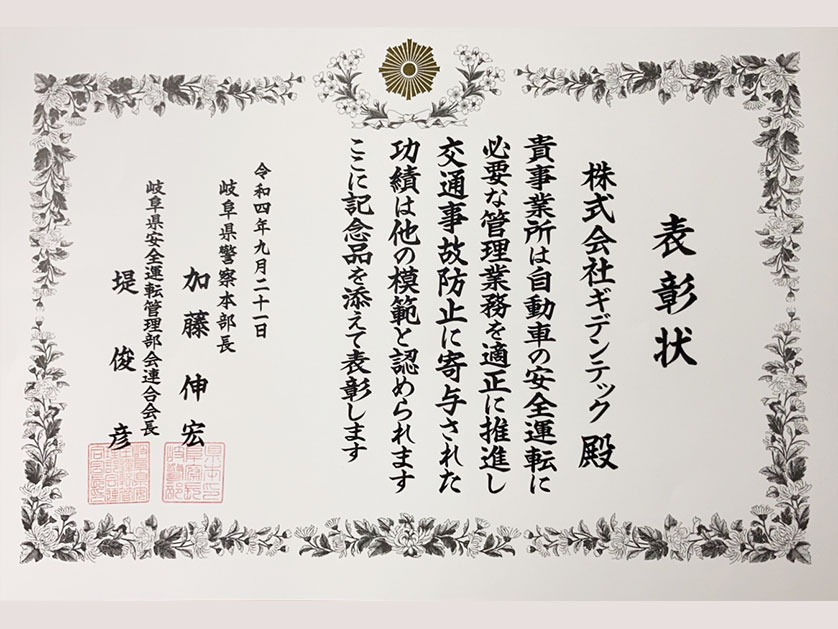 表彰状
株式会社ギデンテック 殿
貴事業所は自動車の安全運転に
必要な管理業務を適正に推進し
交通事故防止に寄与された
功績は他の模範と認められます
ここに記念品を添えて表彰します
令和四年九月二十一日
岐阜県警察本部長
加藤伸宏
岐阜県安全運転管理部会連合会長
堤俊彦